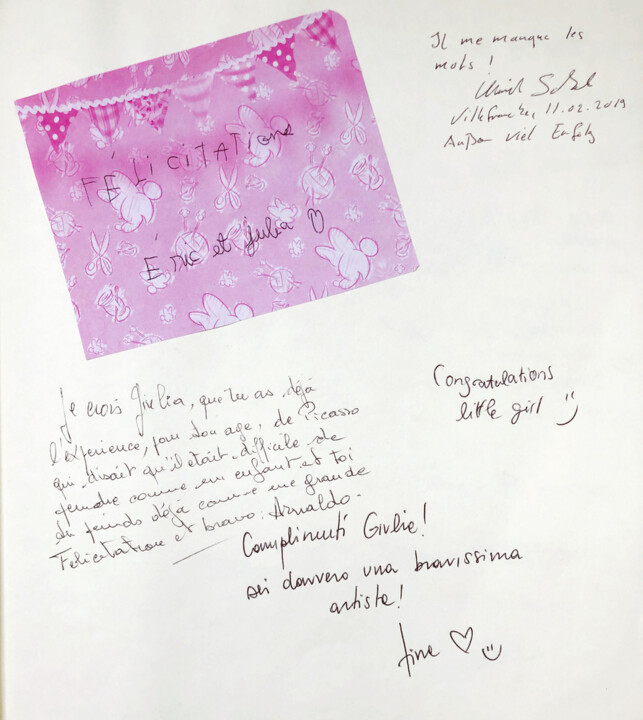 FÉLICITATIONS
Éric et Julia
Il me manque les
mots !
Villefranche, 11.02.2019
viel Erfolg
Je crois Giulia, que tu as déjà
l'expérience, pour ton age, de Picasso
qui disait qu'il était difficile de
peindre comme un enfant et toi
tu peinds déjà comme une grande
Félicitation et bravo. Arnaldo.
Congratulations
little girl
Complimenti Giulia!
sei davvero una bravissima
artista!